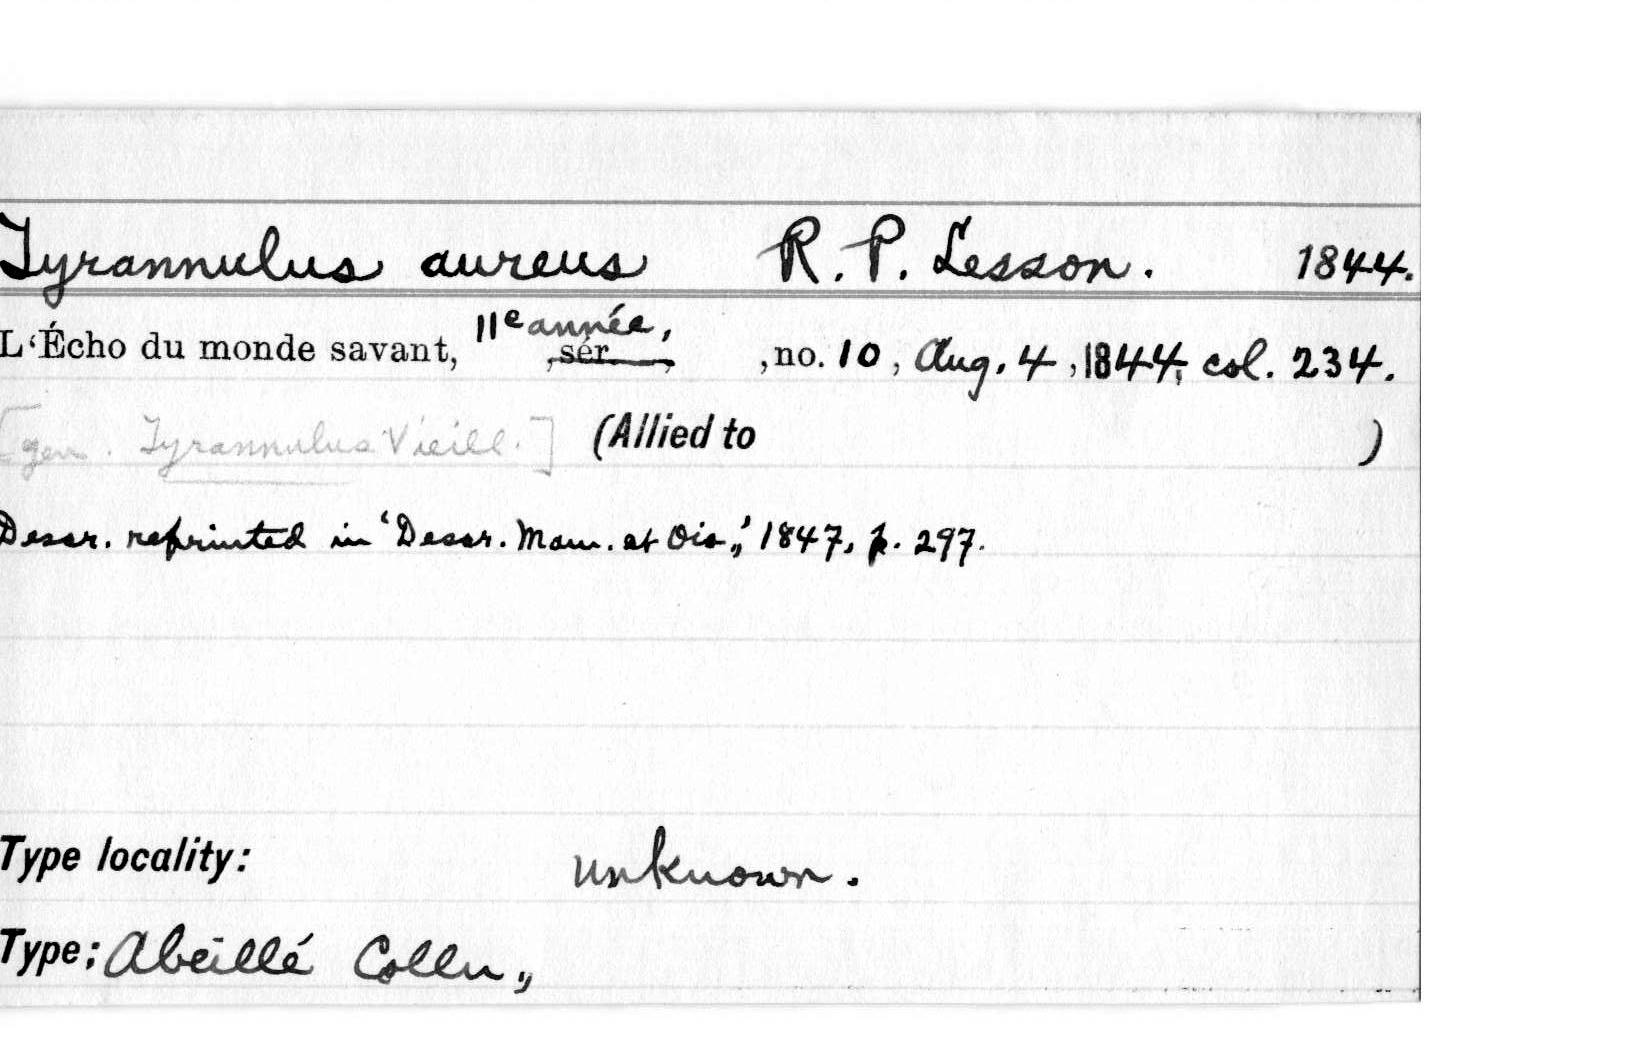 Tyrannulus aureus R. P. Lesson. 1844.
L‘Écho du monde savant, 11e année, ,sér , ,no. 10, Aug. 4, 1844, col. 234.
[gen. Tyrannulus Vieill.] (Allied to )
Descr. reprinted in ‘Descr. Mam. et Ois.,’ 1847, p. 297.
Type locality: unknown.
Type; Abeillé Colln.,